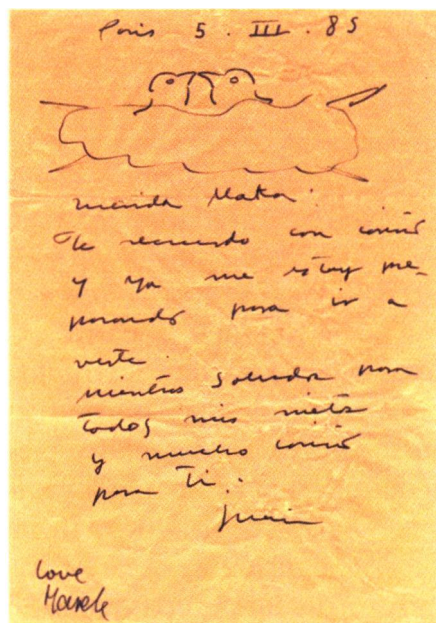 Paris 5 . III . 85
Te recuerdo con cariño
y ya me estoy pre-
parando para ir a
verte.
mientras saludos para
todos mis nietos
y mucho cariño
para ti.
love